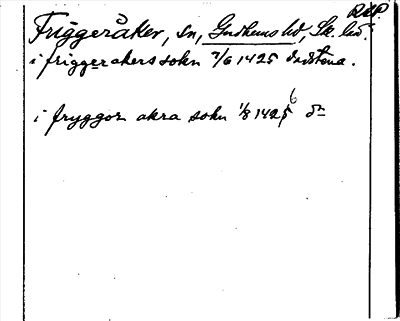 RAP.
Friggeråker, sn, Gudhems hd, Sk. län.
i friggerakers sokn 7/6 1425 Vadstena.
i fryggor akra sokn 1/8 1426 dn